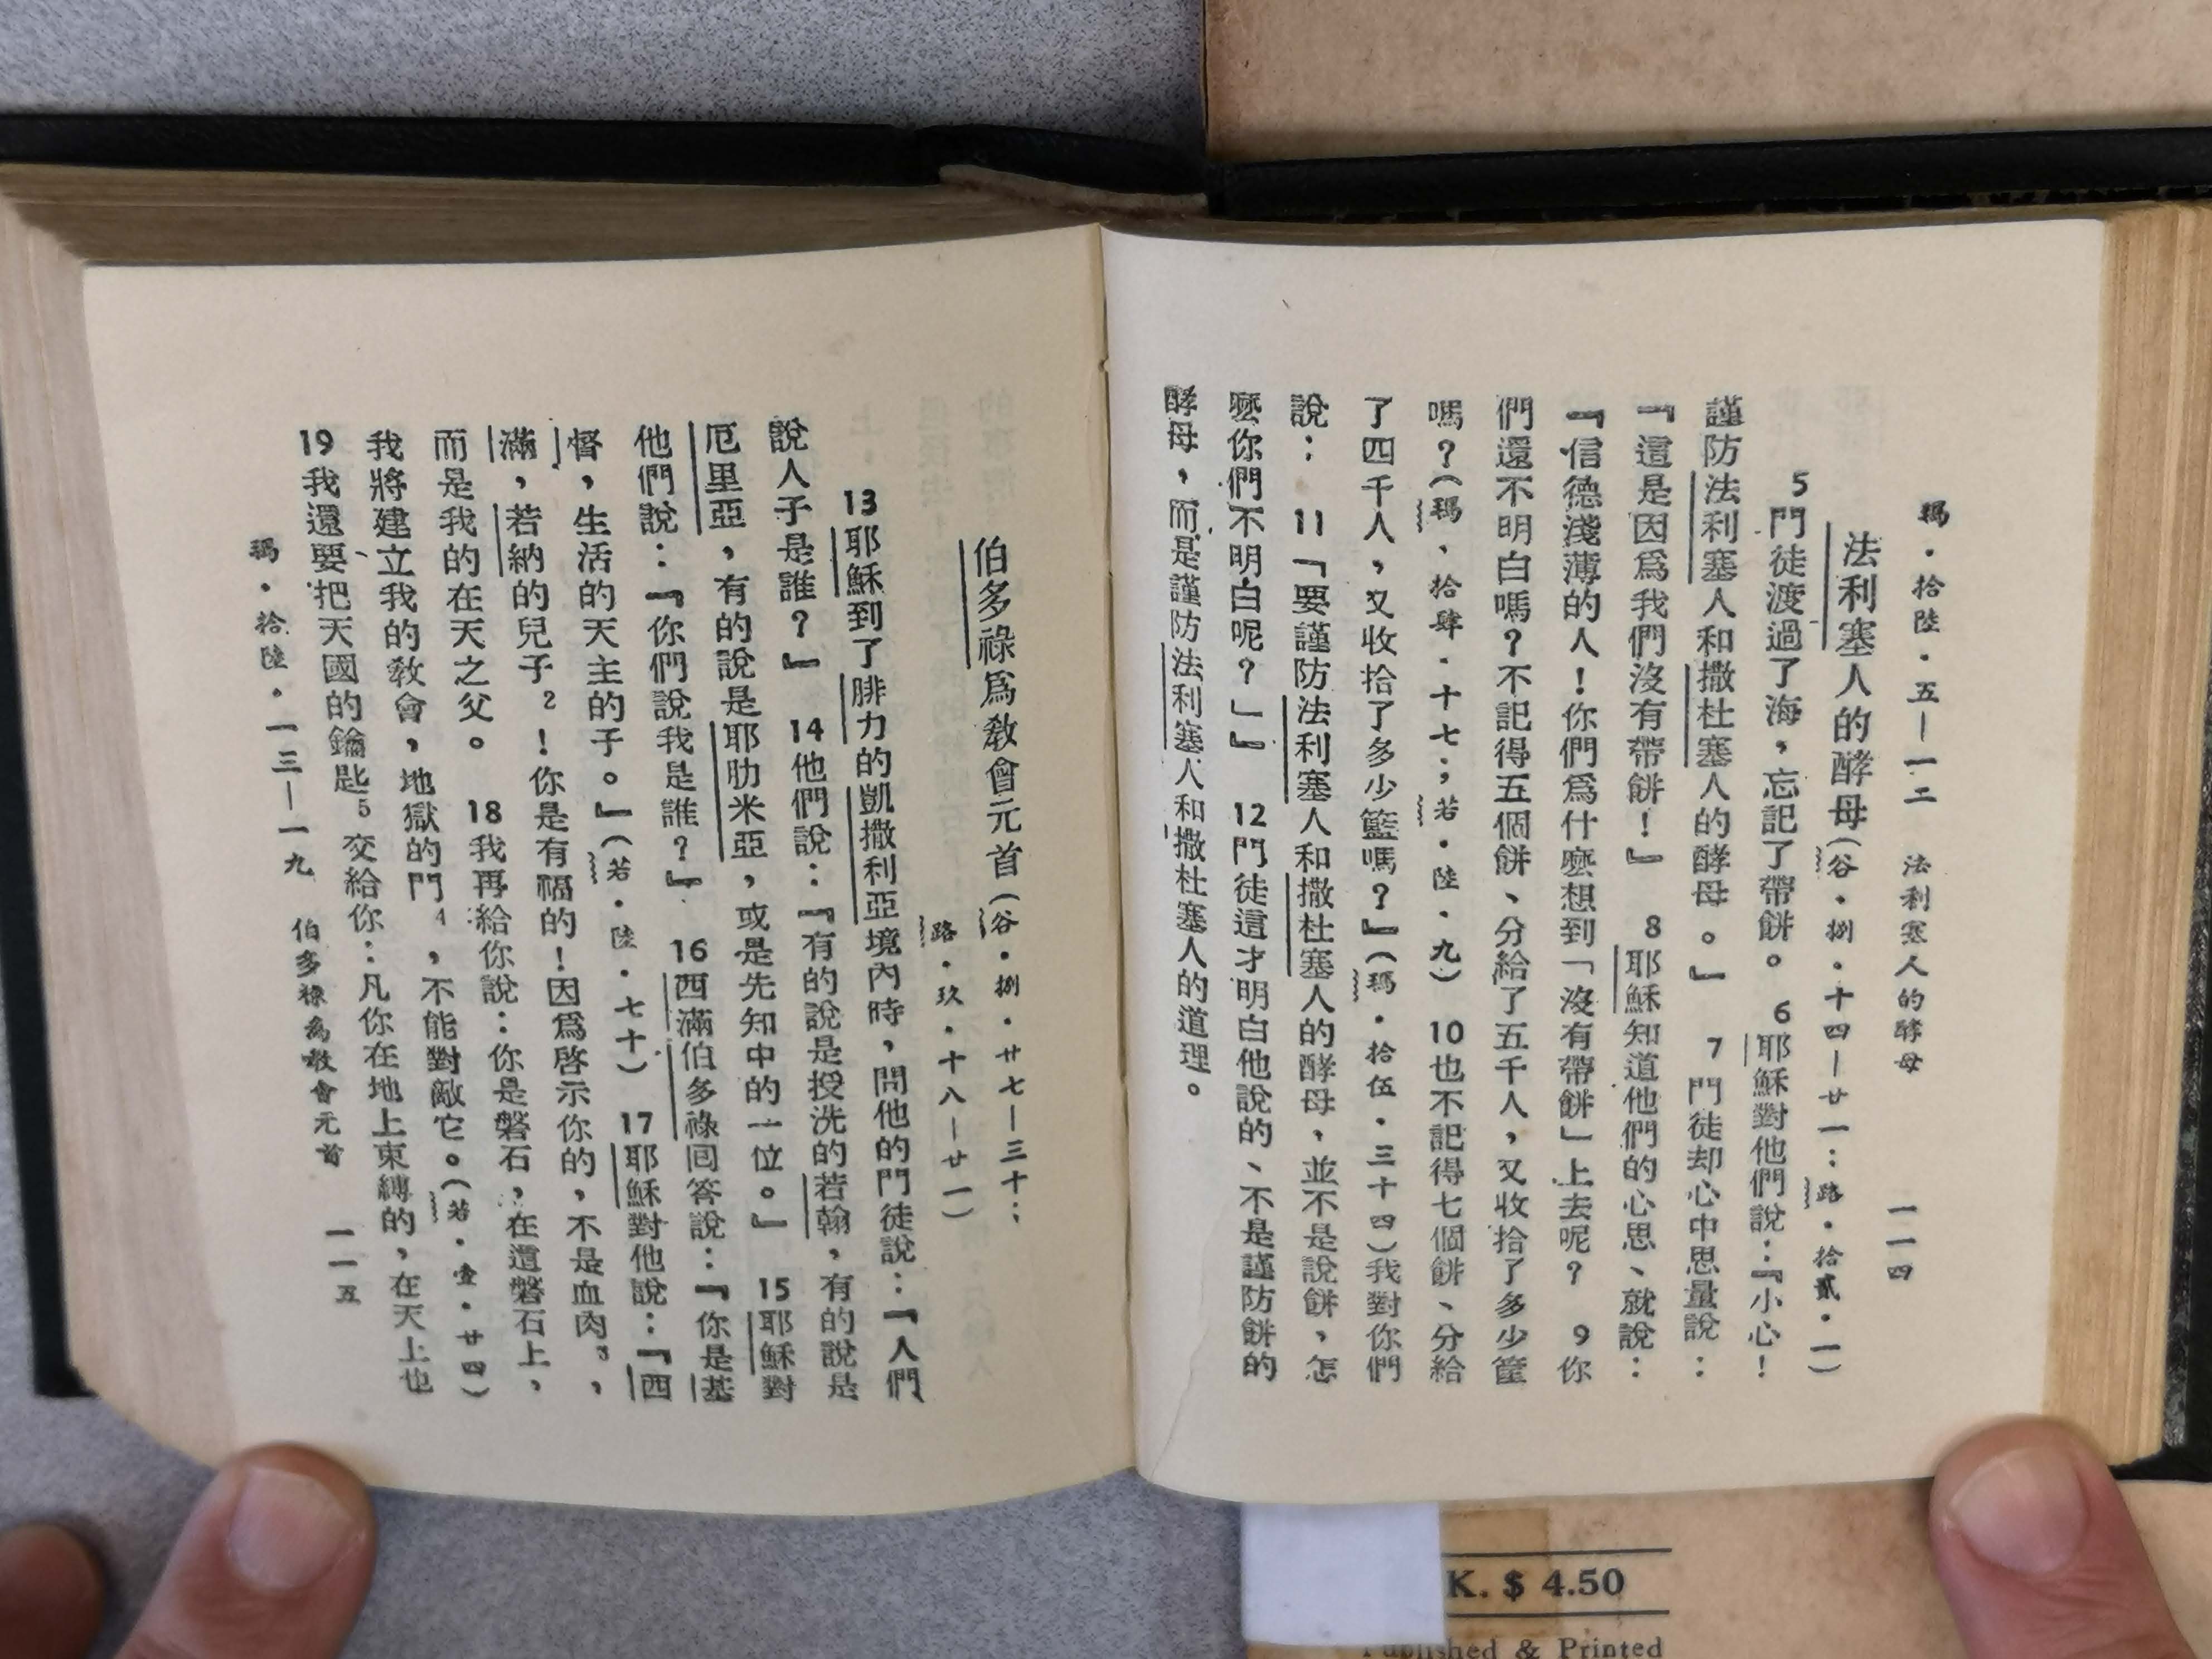 瑪．拾陸．五—一二　法利塞人的酵母　一一四
法利塞人的酵母(谷．捌．十四—廿一：路．拾貳．一)
5門徒渡過了海，忘記了帶餅。　6耶穌對他們說：『小心！
謹防法利塞人和撒杜塞人的酵母。』　7門徒却心中思量說：
『這是因爲我們沒有帶餅！』　8耶穌知道他們的心思、就說：
『信德淺薄的人！你們爲什麽想到「沒有帶餅」上去呢？　9你
們還不明白嗎？不記得五個餅、分給了五千人，又收拾了多少筐
嗎？(瑪、拾肆．十七；若．陸．九)　10也不記得七個餅、分給
了四千人，又收拾了多少籃嗎？』(瑪．拾伍．三十四)我對你們
說：　11「要謹防法利塞人和撒杜塞人的酵母，並不是說餅，怎
麽你們不明白呢？」』　12門徒這才明白他說的、不是謹防餅的
酵母，而是謹防法利塞人和撒杜塞人的道理。
伯多祿爲敎會元首(谷．捌．廿七—三十；
路．玖．十八—廿一)
13耶穌到了腓力的凱撒利亞境內時，問他的門徒說：『人們
說人子是誰？』　14他們說：『有的說是授洗的若翰，有的說是
厄里亞，有的說是耶肋米亞，或是先知中的一位。』　15耶穌對
他們說：『你們說我是誰？』　16西滿伯多祿回答說：『你是基
督，生活的天主的子。』(若．陸．七十)　17耶穌對他說：『西
滿，若納的兒子2！你是有福的！因爲啓示你的，不是血肉3，
而是我的在天之父。　18我再給你說：你是磐石，在這磐石上，
我將建立我的敎會，地獄的門4，不能對敵它。(若．壹．廿四)
19我還要把天國的鑰匙5交給你：凡你在地上束縛的，在天上也
瑪．拾陸．一三—一九　伯多祿爲敎會元首　一一五
K. $ 4.50
Published & Printed